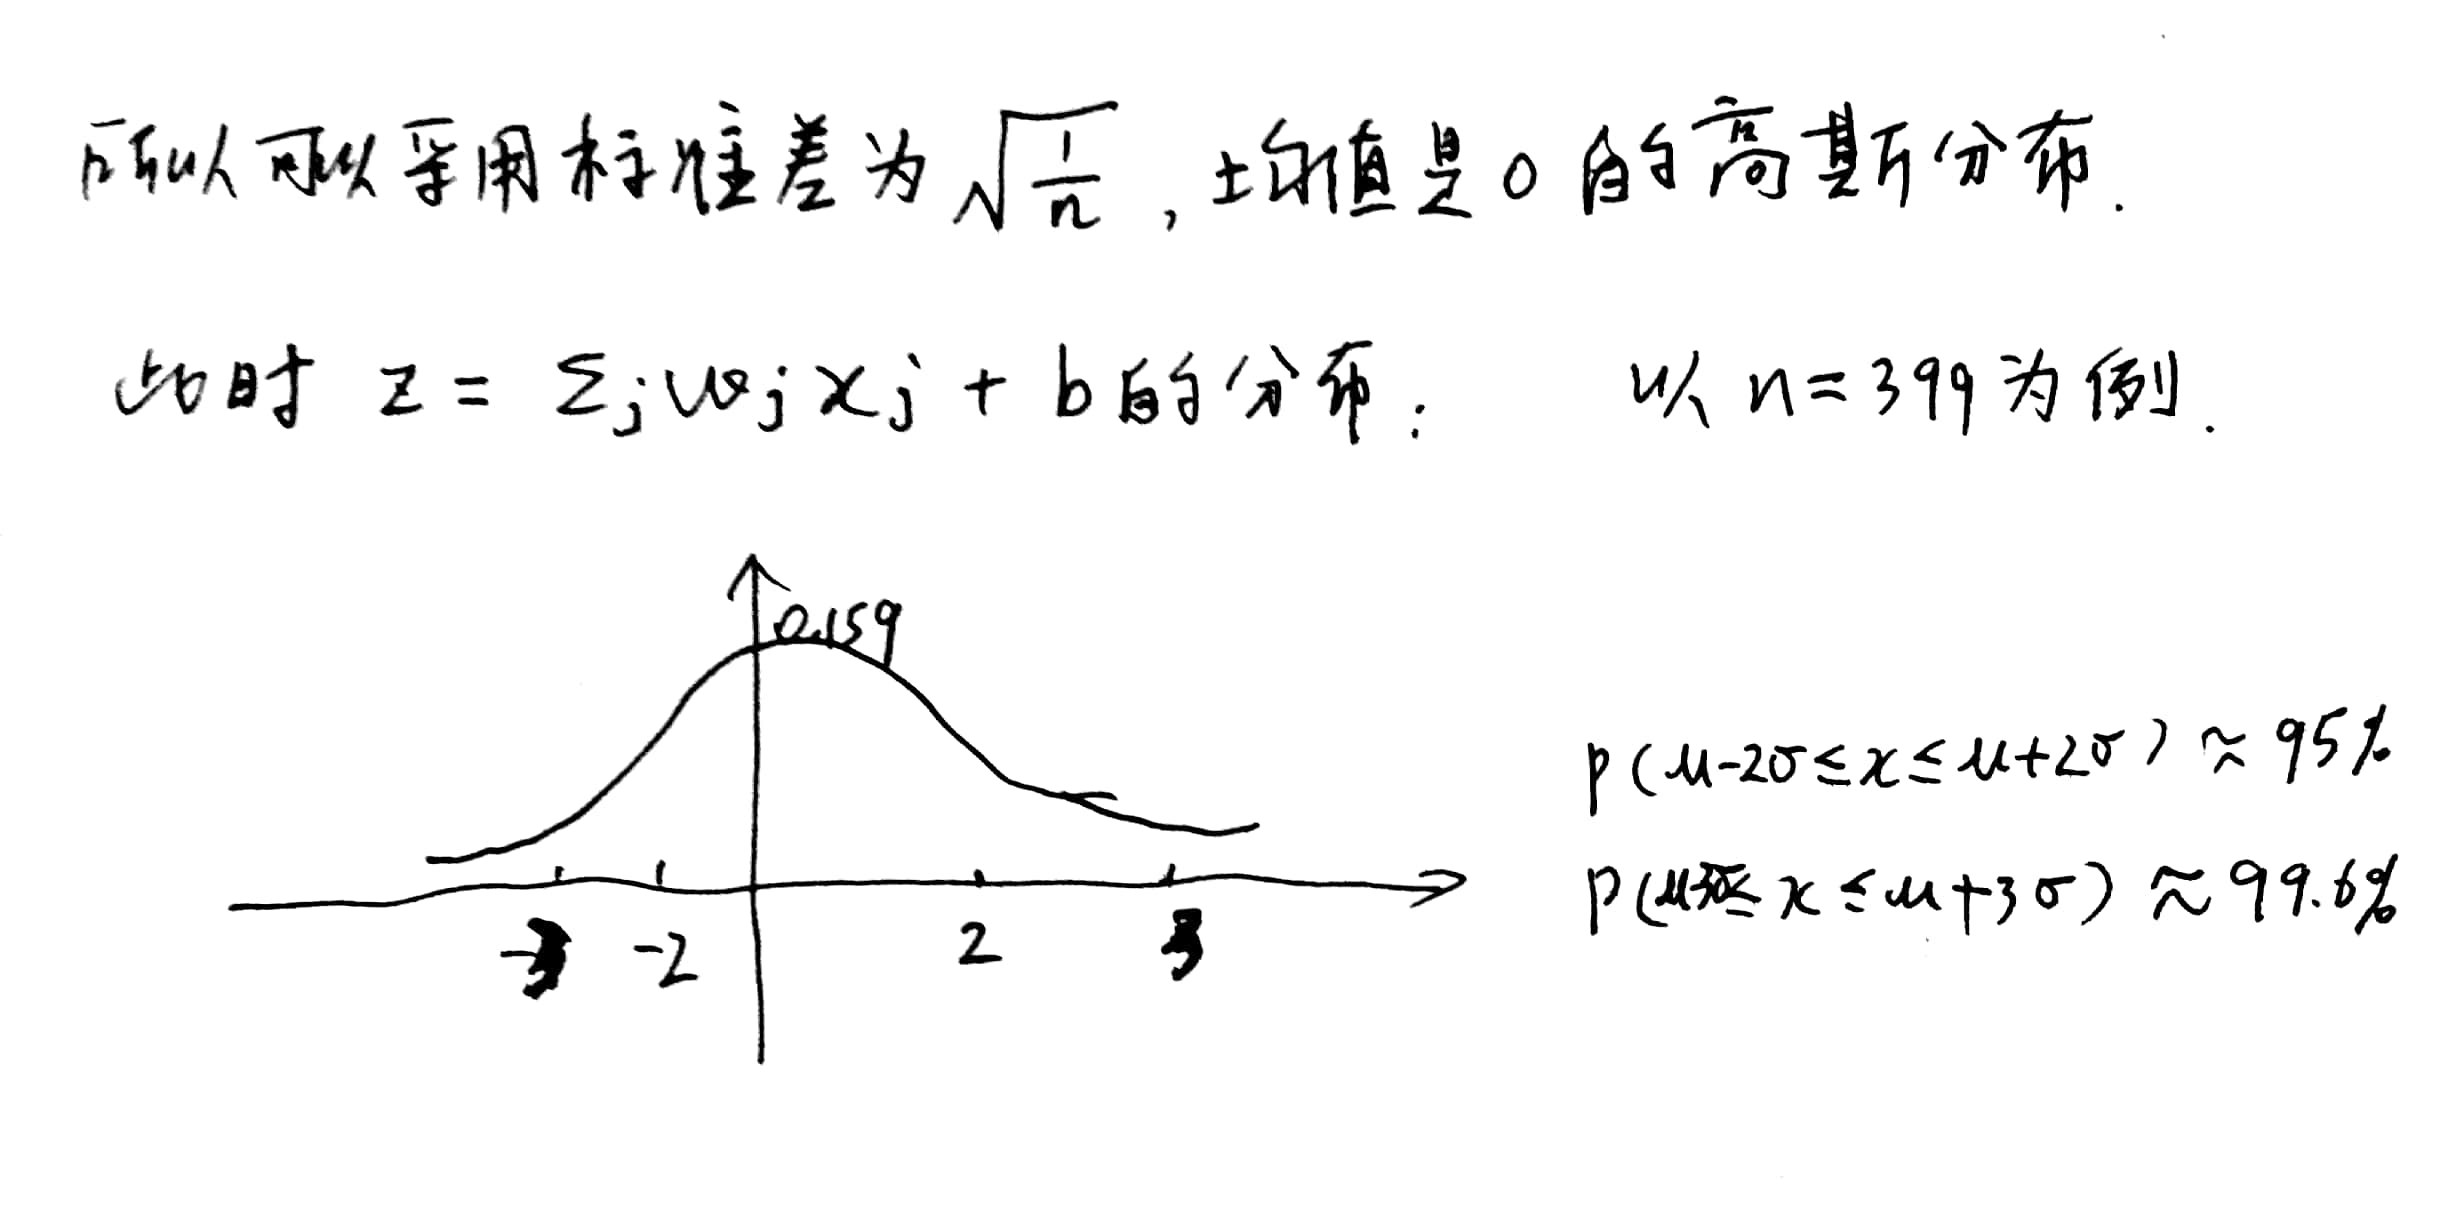 所以可以采用标准差为√(1/n), 均值是0的高斯分布.
此时 z = Σjwjxj + b的分布: 以n=399为例.
0.159
p(μ-2σ≤x≤μ+2σ)≈95%
p(μ-3σ≤x≤μ+3σ)≈99.6%
-3 -2 2 3